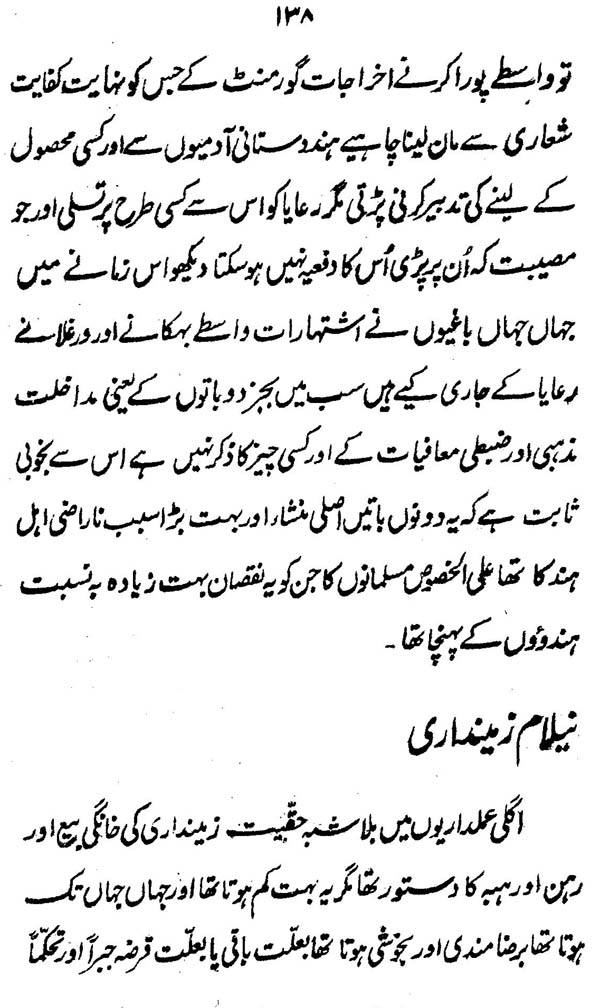 ۱۳۸
تو واسطے پورا کرنے اخراجات گورمنٹ کے جس کو نہایت کفایت
شعاری سے مان لینا چاہیے ہندوستانی آدمیوں سے اور کسی محصول
کے لینے کی تدبیر کرنی پڑتی مگر رعایا کو اس سے کسی طرح پر تسلی اور جو
مصیبت کہ اُن پر پڑی اُس کا دفعیہ نہیں ہو سکتا دیکھو اس زمانے میں
جہاں جہاں باغیوں نے اشتہارات واسطے بہکانے اور ورغلانے
رعایا کے جاری کیے ہیں سب میں بجز دو باتوں کے یعنی مداخلت
مذہبی اور ضبطی معافیات کے اور کسی چیز کا ذکر نہیں ہے اس سے بخوبی
ثابت ہے کہ یہ دونوں باتیں اصلی منشاء اور بہت بڑا سبب ناراضی اہل
ہند کا تھا علی الخصوص مسلمانوں کا جن کو یہ نقصان بہت زیادہ بہ نسبت
ہندوؤں کے پہنچا تھا ۔
نیلام زمینداری
اگلی عملداریوں میں بلا شبہ حقیّت زمینداری کی خانگی بیع اور
رہن اور ہبہ کا دستور تھا مگر یہ بہت کم ہوتا تھا اور جہاں جہاں تک
ہوتا تھا برضا مندی اور بخوشی ہوتا تھا بعلّت باقی یا بعلّت قرضہ جبراً اور تحکّماً